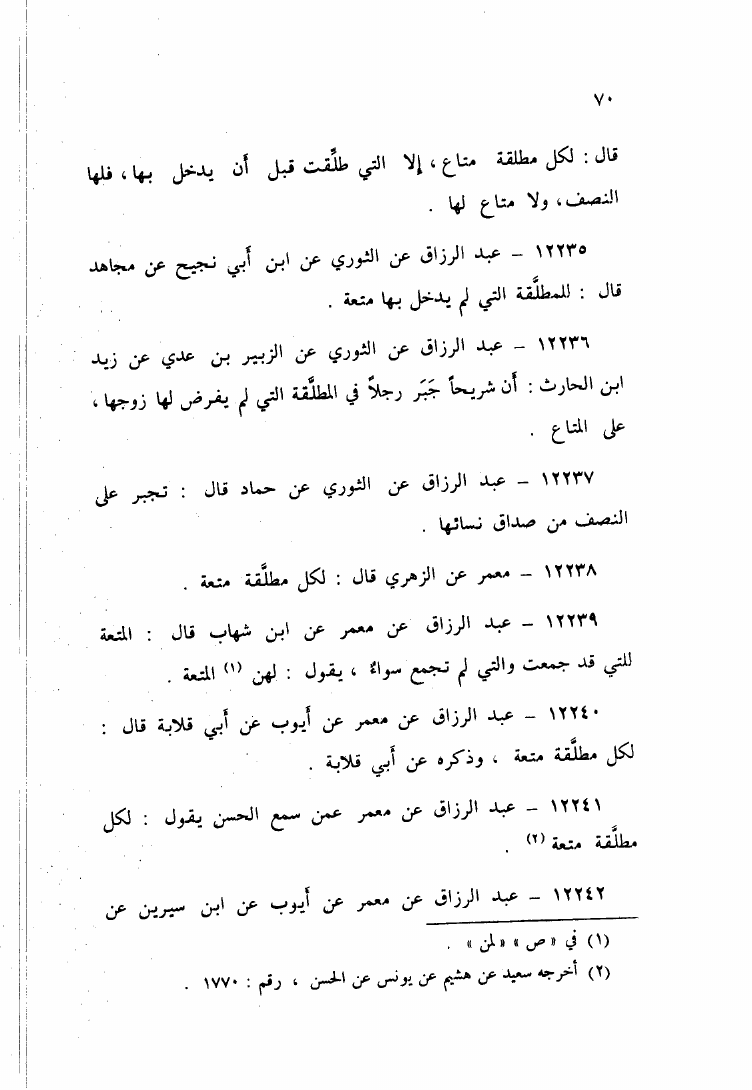 ٧٠
قال : لكل مطلقة متاع ، إلا التي طلِّقت قبل أن يدخل بها ، فلها
النصف ، ولا متاع لها .
١٢٢٣٥ – عبد الرزاق عن الثوري عن ابن أبي نجيح عن مجاهد
قال : للمطلَّقة التي لم يدخل بها متعة .
١٢٢٣٦ – عبد الرزاق عن الثوري عن الزبير بن عدي عن زيد
ابن الحارث : أن شريحاً جَبَر رجلاً في المطلَّقة التي لم يفرض لها زوجها ،
على المتاع .
١٢٢٣٧ – عبد الرزاق عن الثوري عن حماد قال : تجبر على
النصف من صداق نسائها .
١٢٢٣٨ – معمر عن الزهري قال : لكل مطلَّقة متعة .
١٢٢٣٩ – عبد الرزاق عن معمر عن ابن شهاب قال : المتعة
للتي قد جمعت والتي لم تجمع سواءٌ ، يقول : لهن (١) المتعة .
١٢٢٤٠ – عبد الرزاق عن معمر عن أيوب عن أبي قلابة قال :
لكل مطلَّقة متعة ، وذكره عن أبي قلابة .
١٢٢٤١ – عبد الرزاق عن معمر عمن سمع الحسن يقول : لكل
مطلَّقة متعة (٢) .
١٢٢٤٢ – عبد الرزاق عن معمر عن أيوب عن ابن سيرين عن
(١) في « ص » « لمن » .
(٢) أخرجه سعيد عن هشيم عن يونس عن الحسن ، رقم : ١٧٧٠ .